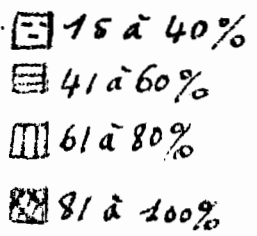 15 à 40%
41 à 60%
61 à 80%
81 à 100%